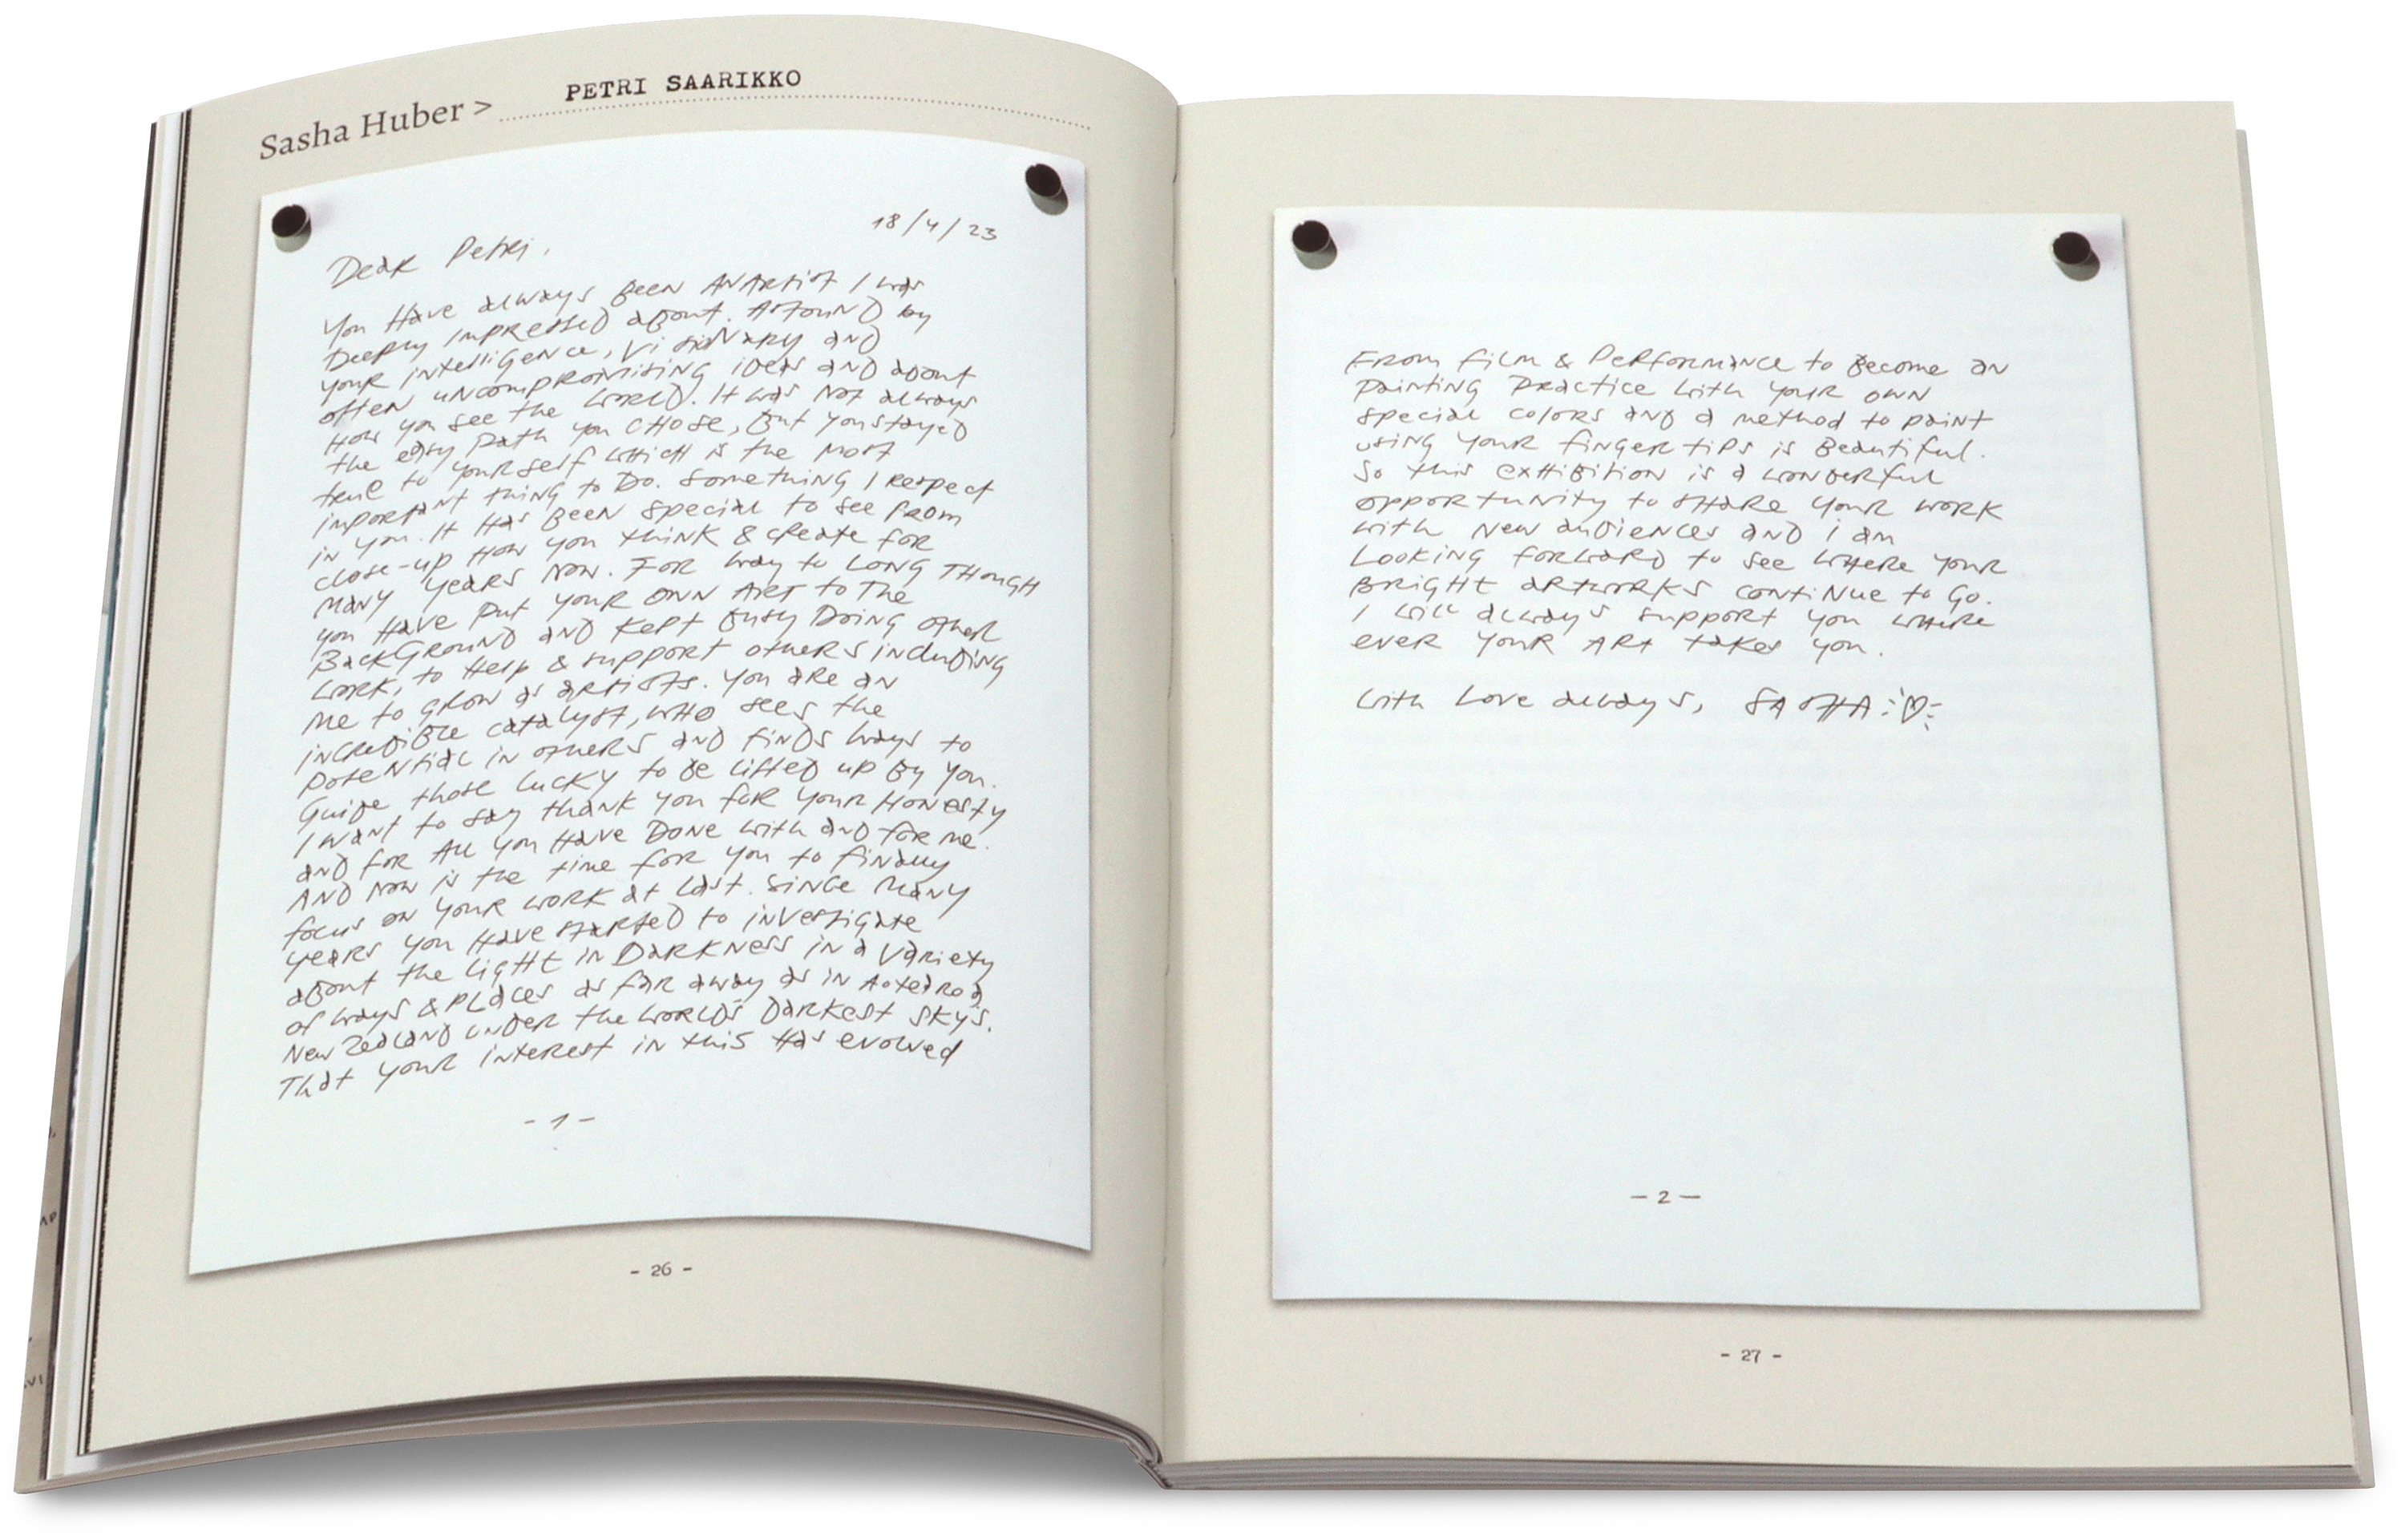 Sasha Huber > PETRI SAARIKKO
18/4/23
Dear Petri,
You Have always Been AN Artist I was
Deeply Impressed about. Astound by
your intelligence, visionary and
often uncompromising ideas and about
How you see the world. It was not always
the easy path you chose, But you stayed
true to yourself which is the most
important thing to Do. Something I respect
in you. It Has Been special to see from
close-up How you think & create for
many years now. For way to LONG THOUGH
you Have put your own Art to The
BackGround and kept Busy Doing other
work, to Help & support others including
me to grow as artists. You are an
incredible catalyst, who sees the
potential in others and finds ways to
Guide those lucky to be lifted up By you.
I want to say thank you for your Honesty
and for All you Have Done with and for me.
AND now is the time for you to finally
focus on your work at last. Since many
years you Have started to investigate
about the light in Darkness in a variety
of ways & places as far away as in Aotearoa
New Zealand under the world's Darkest skys.
That your interest in this Has evolved
- 1 -
- 26 -
From film & Performance to Become an
painting practice with your own
special colors and a method to paint
using your finger tips is Beautiful.
So this exhibition is a wonderful
opportunity to share your work
with new audiences and i am
Looking forward to see where your
Bright artworks continue to Go.
I will always support you where
ever your Art takes you.
with Love always, SASHA
- 2 -
- 27 -